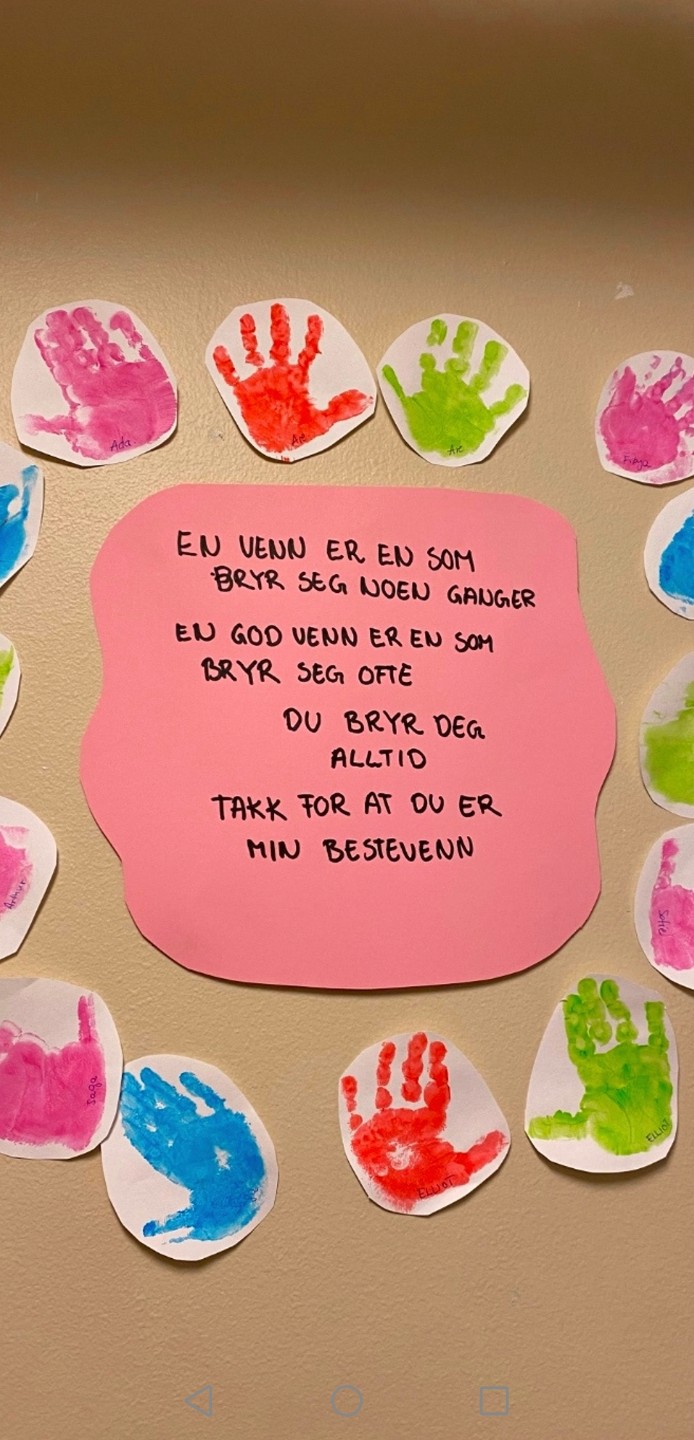 Ada
EN VENN ER EN SOM
BRYR SEG NOEN GANGER
EN GOD VENN ER EN SOM
BRYR SEG OFTE
DU BRYR DEG
ALLTID
TAKK FOR AT DU ER
MIN BESTEVENN
Saga
ELLIOT
ELLIOT